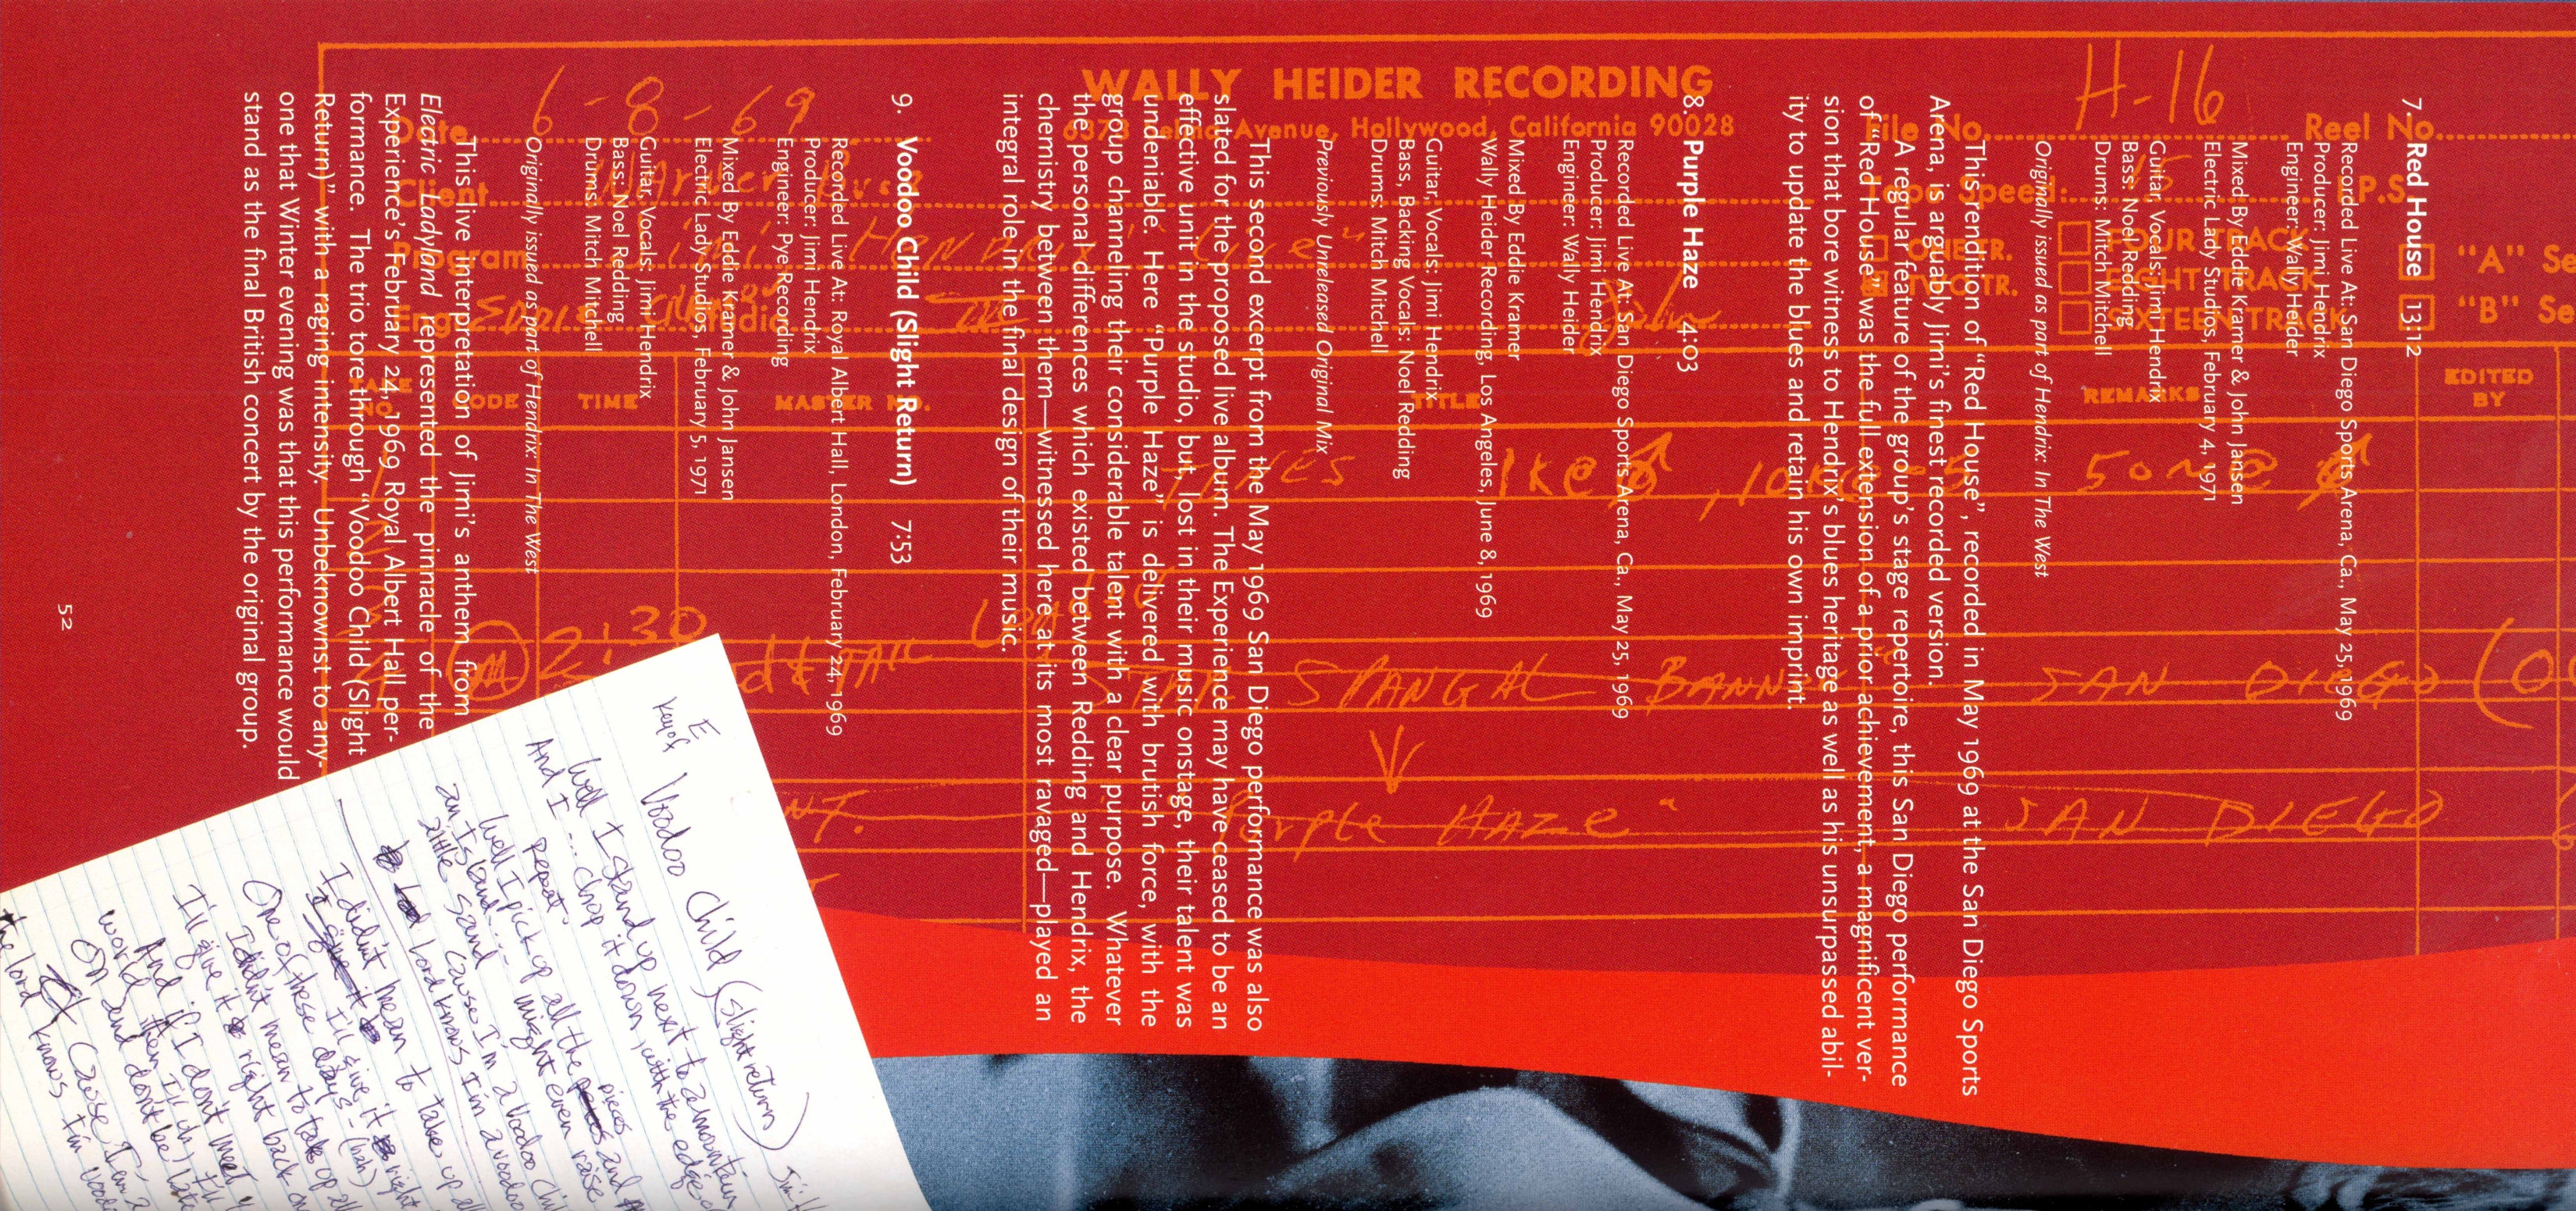 7. Red House 13:12
Recorded Live At: San Diego Sports Arena, Ca., May 25, 1969
Producer: Jimi Hendrix
Engineer: Wally Heider
Mixed By Eddie Kramer & John Jansen
Electric Lady Studios, February 4, 1971
Guitar, Vocals: Jimi Hendrix
Bass: Noel Redding
Drums: Mitch Mitchell
Originally issued as part of Hendrix: In The West
This rendition of “Red House”, recorded in May 1969 at the San Diego Sports
Arena, is arguably Jimi’s finest recorded version.
A regular feature of the group’s stage repertoire, this San Diego performance
of “Red House” was the full extension of a prior achievement, a magnificent ver-
sion that bore witness to Hendrix’s blues heritage as well as his unsurpassed abil-
ity to update the blues and retain his own imprint.
8. Purple Haze 4:03
Recorded Live At: San Diego Sports Arena, Ca., May 25, 1969
Producer: Jimi Hendrix
Engineer: Wally Heider
Mixed By Eddie Kramer
Wally Heider Recording, Los Angeles, June 8, 1969
Guitar, Vocals: Jimi Hendrix
Bass, Backing Vocals: Noel Redding
Drums: Mitch Mitchell
Previously Unreleased Original Mix
This second excerpt from the May 1969 San Diego performance was also
slated for the proposed live album. The Experience may have ceased to be an
effective unit in the studio, but, lost in their music onstage, their talent was
undeniable. Here “Purple Haze” is delivered with brutish force, with the
group channeling their considerable talent with a clear purpose. Whatever
the personal differences which existed between Redding and Hendrix, the
chemistry between them—witnessed here at its most ravaged—played an
integral role in the final design of their music.
9. Voodoo Child (Slight Return) 7:53
Recorded Live At: Royal Albert Hall, London, February 24, 1969
Producer: Jimi Hendrix
Engineer: Pye Recording
Mixed By Eddie Kramer & John Jansen
Electric Lady Studios, February 5, 1971
Guitar, Vocals: Jimi Hendrix
Bass: Noel Redding
Drums: Mitch Mitchell
Originally issued as part of Hendrix: In The West
This live interpretation of Jimi’s anthem from
Electric Ladyland represented the pinnacle of the
Experience’s February 24, 1969 Royal Albert Hall per-
formance. The trio tore through “Voodoo Child (Slight
Return)” with a raging intensity. Unbeknownst to any-
one that Winter evening was that this performance would
stand as the final British concert by the original group.
52
WALLY HEIDER RECORDING
6373 Selma Avenue, Hollywood, California 90028
Date 6-8-69
File No. H-16 Reel No.
Client Warner Bros
Tape Speed: 15 I.P.S.
Program Jimi Hendrix "Live"
Eng. Eddie Studio III
FOUR TRACK
EIGHT TRACK
SIXTEEN TRACK
TWO TR.
"A" Se
"B" Se
TAKE NO. CODE TIME MASTER NO. TITLE REMARKS EDITED BY
50 N @
2:30
STAR SPANGAL BANNER SAN DIEGO
Purple HAZE" SAN DIEGO
E
Key of Voodoo Child (slight return)
Well I stand up next to a mountain
And I ... chop it down, with the edge
repeat.
Well I pick up all the pieces and
an Island... might even raise
a little sand Cause I'm a Voodoo Chi
lord knows I'm a voodoo
I didn't mean to take up all
I'll give it right
One of these days - (huh)
I didn't mean to take up all
I'll give it right back on
And if I don't meet y
world then I'll
On and don't be late
Cause I'm a
the lord knows I'm voodo